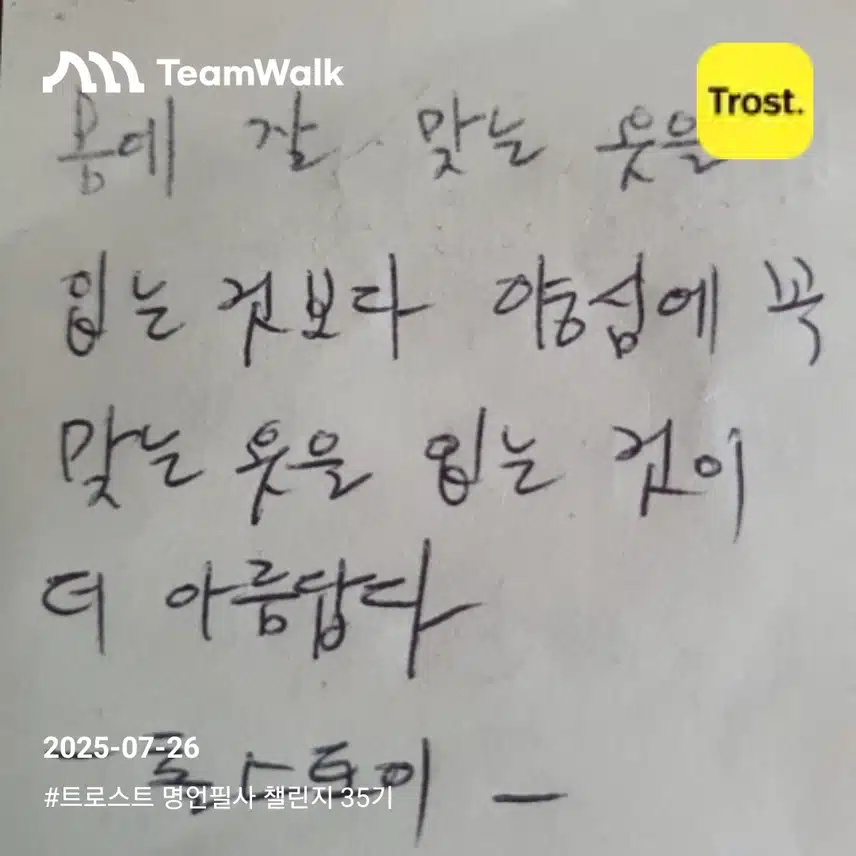 TeamWalk
Trost.
몸에 잘 맞는 옷을
입는 것보다 양심에 꼭
맞는 옷을 입는 것이
더 아름답다
2025-07-26
- 톨스토이 -
#트로스트 명언필사 챌린지 35기